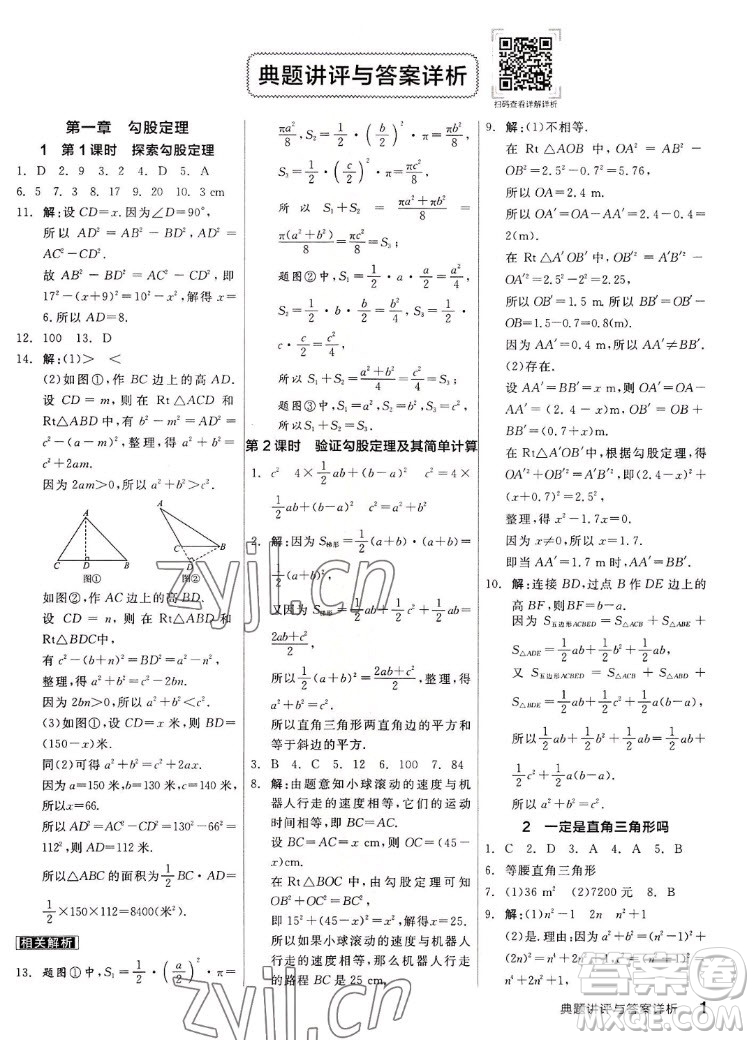 典题讲评与答案详析
扫码查看详解详析
第一章　勾股定理
1　第1课时　探索勾股定理
1. D　2. 9　3. 2　4. D　5. A
6. 5　7. 3　8. 17　9. 20　10. 3 cm
11. 解:设 CD=x. 因为∠D=90°,
所以 AD²=AB²-BD², AD²=
AC²-CD².
故 AB²-BD²=AC²-CD², 即
17²-(x+9)²=10²-x², 解得 x=
6. 所以 AD=8.
12. 100　13. D
14. 解:(1)>　<
(2)如图①, 作 BC 边上的高 AD.
设 CD=m, 则在 Rt△ACD 和
Rt△ABD 中, 有 b²-m²=AD²=
c²-(a-m)², 整理, 得 a²+b²=
c²+2am.
因为 2am>0, 所以 a²+b²>c².
A
B
D
C
图①
A
D
C
B
图②
如图②, 作 AC 边上的高 BD.
设 CD=n, 则在 Rt△ABD 和
Rt△BDC 中,
有 c²-(b+n)²=BD²=a²-n²,
整理, 得 a²+b²=c²-2bn.
因为 2bn>0, 所以 a²+b²<c².
(3)如图①, 设 CD=x 米, 则 BD=
(150-x)米.
同(2)可得 b²-x²=c²-(a-x)².
因为 a=150 米, b=130 米, c=140 米,
所以 x=66.
所以 AD²=AC²-CD²=130²-66²=
112², 所以 AD=112 米.
所以△ABC 的面积为 1/2 BC·AD=
1/2×150×112=8400(米²).
相关解析
13. 题图①中, S₁=1/2·(a/2)²·π=
πa²/8, S₂=1/2·(b/2)²·π=πb²/8,
S₃=1/2·(c/2)²·π=πc²/8.
所以 S₁+S₂=πa²/8+πb²/8=
π(a²+b²)/8=πc²/8=S₃.
题图②中, S₁=1/2·a·1/2a=
c·1/2c=c²/2,
所以 S₁+S₂=(a²+b²)/2=c²/2=S₃.
题图③中, S₁+S₂=S₃.
第2课时　验证勾股定理及其简单计算
1. c²　4×1/2ab+(b-a)²　c²=4×
1/2ab+(b-a)²　a²+b²=c²
2. 解:因为 S梯形=1/2(a+b)·(a+b)=
又因为 S梯形=1/2ab+1/2ab+1/2c²=
所以 (a²+2ab+b²)/2=(2ab+c²)/2, 整理,
得 a²+b²=c².
所以直角三角形两直角边的平方和
等于斜边的平方.
3. B　4. C　5. 12　6. 100　7. 84
8. 解:由题意知小球滚动的速度与机
器人行走的速度相等, 它们的运动
时间相等, 即 BC=AC.
设 BC=AC=x cm, 则 OC=(45-
x)cm.
在 Rt△BOC 中, 由勾股定理可知
OB²+OC²=BC²,
即 15²+(45-x)²=x², 解得 x=25.
所以如果小球滚动的速度与机器人
行走的速度相等, 那么机器人行走
的路程 BC 是 25 cm.
9. 解:(1)不相等.
在 Rt△AOB 中, OA²=AB²-
OB²=2.5²-0.7²=5.76,
所以 OA=2.4 m.
所以 OA′=OA-AA′=2.4-0.4=
2(m).
在 Rt△A′OB′中, OB′²=A′B′²-
OA′²=2.5²-2²=2.25,
所以 OB′=1.5 m, 所以 BB′=OB′-
OB=1.5-0.7=0.8(m).
因为 AA′=0.4 m, 所以 AA′≠BB′.
(2)存在.
设 AA′=BB′=x m, 则 OA′=OA-
AA′=(2.4-x)m, OB′=OB+
BB′=(0.7+x)m.
在 Rt△A′OB′中, 根据勾股定理, 得
OA′²+OB′²=A′B′², 即(2.4-x)²
+(0.7+x)²=2.5²,
整理, 得 x²-1.7x=0.
因为 x≠0, 所以解得 x=1.7.
即当 AA′=1.7 m 时, AA′=BB′.
10. 解:连接 BD, 过点 B 作 DE 边上的
高 BF, 则 BF=b-a.
因为 S五边形ACBED=S△ACB+S△ABE+
S△ADE=1/2ab+1/2b²+1/2ab,
又 S五边形ACBED=S△ACB+S△ABD+
S△BDE=1/2ab+1/2c²+1/2a(b-a),
所以 1/2ab+1/2b²+1/2ab=1/2ab+
1/2c²+1/2a(b-a),
所以 a²+b²=c².
2　一定是直角三角形吗
1. C　2. D　3. A　4. A　5. B
6. 等腰直角三角形
7. (1)36 m²　(2)7200 元　8.
9. 解:(1)n²-1　2n　n²+1
(2)是. 理由:因为 a²+b²=(n²-1)²+
n⁴+2n²+1,
zyjl.cn
zyjl.cn
答案圈
MXQE.COM
典题讲评与答案详析　1